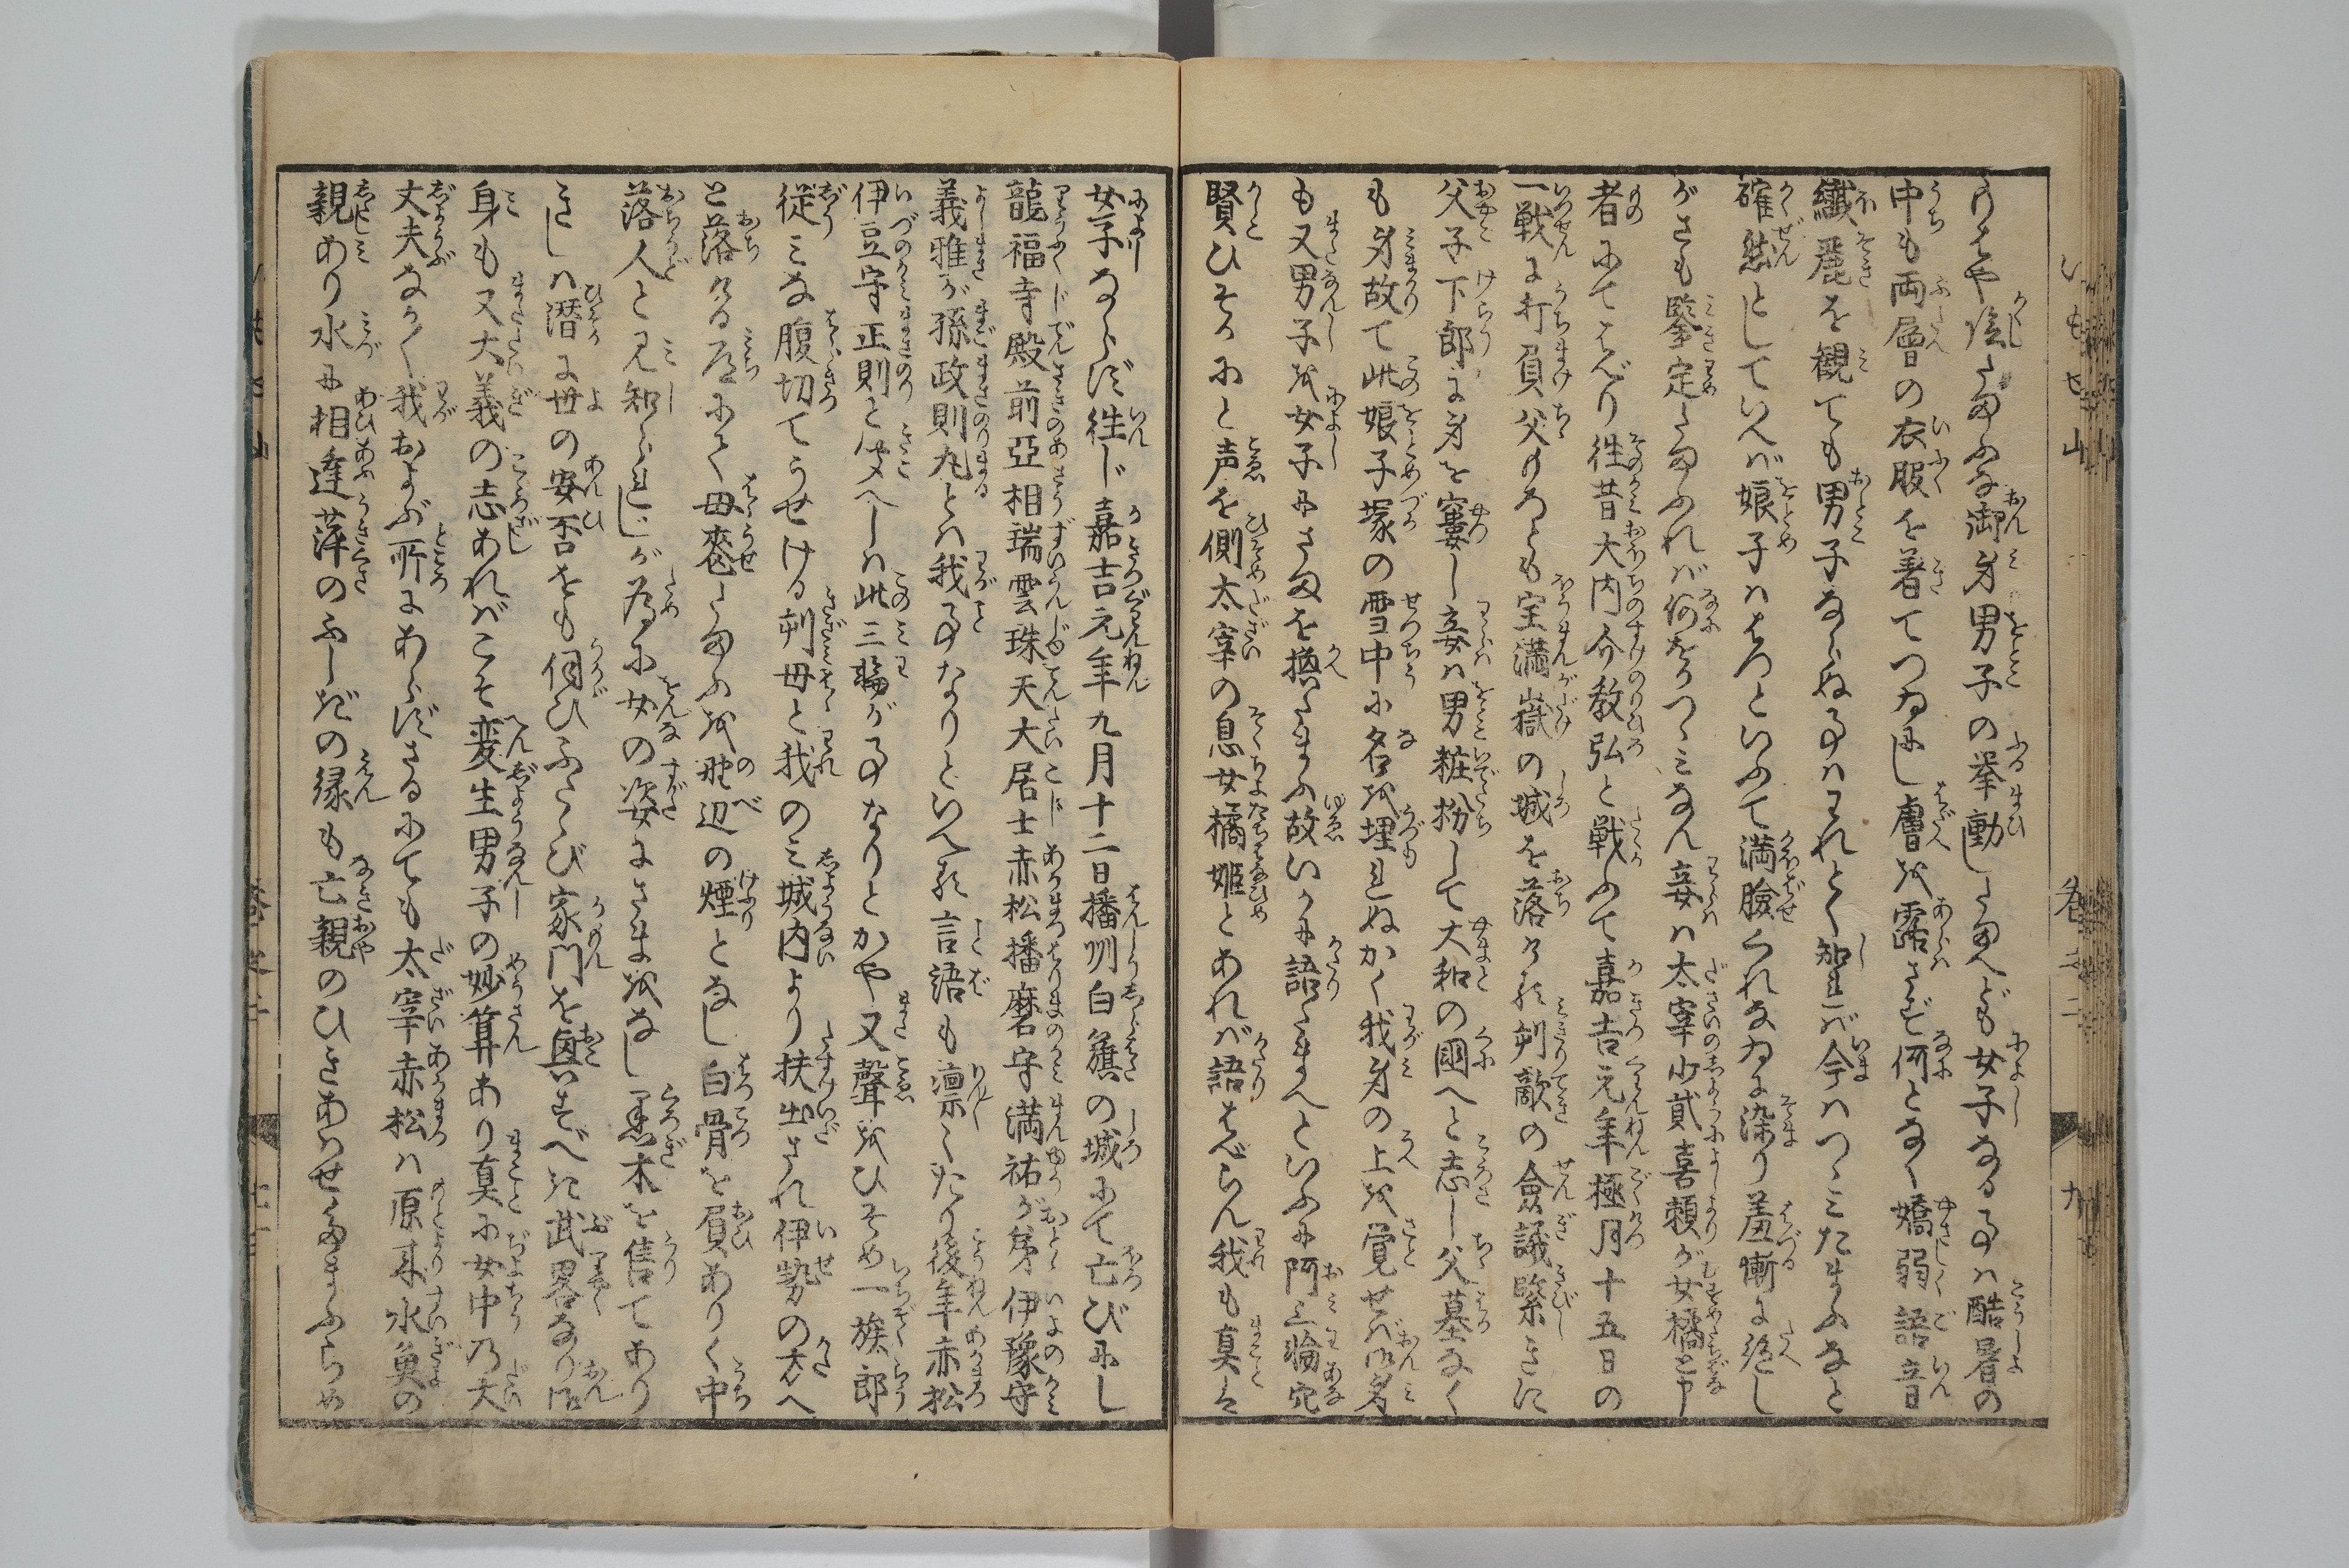 りそや陰したまふな御身男子の挙動したまへども女子なる事ハ酷暑の
中も両層の衣服を着てつゐにし膚を露さず何となく嬌弱語音
繊麗を観ても男子ならぬ事ハわれとく知れバ今ハつゝミたまふなと
確然としていへバ娘子ハはつといふて満臉くれなゐに染り羞慚に絶し
がさも鑒定たまふれバ何をかつゝミなん妾ハ太宰少貳喜頼が女橘と申
者にてはべり往昔大内介教弘と戦ふて嘉吉元年極月十五日の
一戦に打負父のろとも宝満嶽の城を落ける刻敵の僉議緊きに
父子下郎に身を窶し妾ハ男粧扮して大和の國へと志し父墓なく
も身故て此娘子塚の雪中に名を埋れぬかく我身の上を覚せバ御身
も又男子を女子にさまを換たまふ故いかに語たまへといふに阿三輪完
賢ひそかにと声を側太宰の息女橘姫とあれバ語はべらん我も真は
女子ならず往じ嘉吉元年九月十二日播州白籏の城にて亡びにし
龍福寺殿前亞相瑞雲珠天大居士赤松播磨守満祐が弟伊豫守
義雅が孫政則丸とハ我事なりといへる言語も凛々たり後年赤松
伊豆守正則と聞へしハ此三輪が事なりとかや又聲をひそめ一族郎
従ミな腹切てうせける刻母と我のミ城内より扶出され伊勢の方へ
と落ける道にて母兦たまふを野辺の煙となし白骨を屓ありく中
落人と見知られじが為に女の姿にさまをなし黒木を售てあり
きしハ潜に世の安否をも伺ひふたゝび家門を興すべき武畧なり御
身も又大義の志あればこそ変生男子の妙算あり真に女中乃大
丈夫なか〳〵我およぶ所にあらずさるにても太宰赤松ハ原来水魚の
親あり水に相逢萍のふしぎの縁も亡親のひきあハせたまふらめ